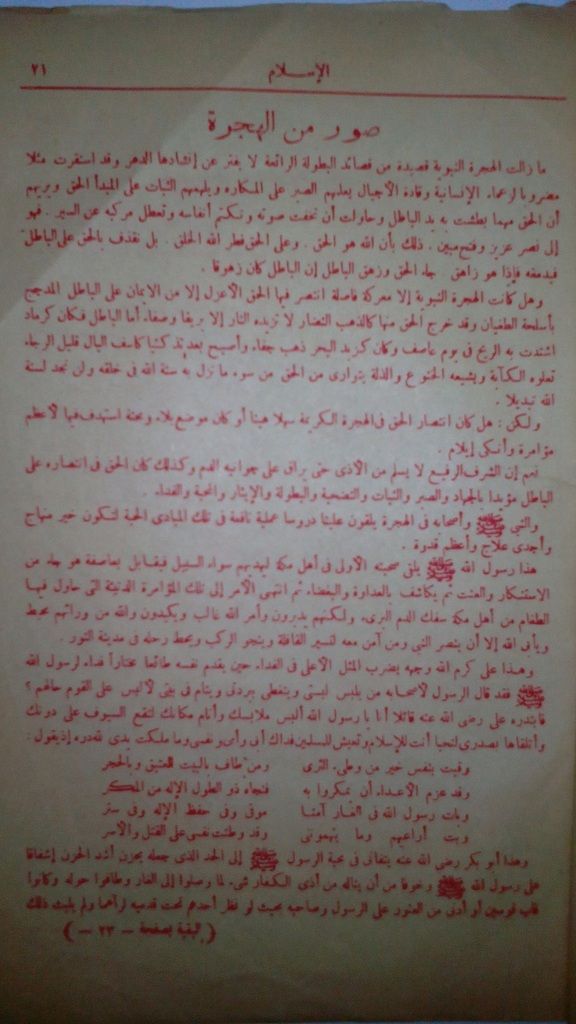 الإسلام
٢١
صور من الهجرة
ما زالت الهجرة النبوية قصيدة من قصائد البطولة الرائعة لا يفتر عن إنشادها الدهر وقد استقرت مثلا
مضروبا لزعماء الإنسانية وقادة الأجيال يعلمهم الصبر على المكاره ويلهمهم الثبات على المبدأ الحق ويريهم
أن الحق مهما بطشت به يد الباطل وحاولت أن تخفت صوته وتكتم أنفاسه وتعطل مركبه عن السير . فهو
إلى نصر عزيز وفتح مبين . ذلك بأن الله هو الحق . وعلى الحق فطر الله الخلق . بل نقذف بالحق على الباطل
فيدمغه فإذا هو زاهق . جاء الحق وزهق الباطل إن الباطل كان زهوقا .
وهل كانت الهجرة النبوية إلا معركة فاصلة انتصر فيها الحق الأعزل إلا من الايمان على الباطل المدجج
بأسلحة الطغيان وقد خرج الحق منها كالذهب النضار لا تزيده النار إلا بريقا وصفاء أما الباطل فكان كرماد
اشتدت به الريح في يوم عاصف وكان كزبد البحر ذهب جفاء وأصبح بعدئذ كئيبا كاسف البال قليل الرجاء
تعلوه الكآبة ويشيعه الخنوع والذلة يتوارى من الحق من سوء ما نزل به سنة الله في خلقه ولن تجد لسنة
الله تبديلا .
ولكن : هل كان انتصار الحق في الهجرة الكريمة سهلا هينا أو كان موضع بلاء ومحنة استهدف فيها لأعظم
مؤامرة وأنكى إيلام .
نعم إن الشرف الرفيع لا يسلم من الأذى حتى يراق على جوانبه الدم وكذلك كان الحق في انتصاره على
الباطل مؤيدا بالجهاد والصبر والثبات والتضحية والبطولة والإيثار والمحبة والفداء .
والنبي ﷺ وأصحابه في الهجرة يلقون علينا دروسا عملية نافعة في تلك المبادئ الحية لتكون خير منهاج
وأجدى علاج وأعظم قدوة .
هذا رسول الله ﷺ يلقى صيحته الأولى في أهل مكة ليهديهم سواء السبيل فيقابل بعاصفة هوجاء من
الاستنكار والعنت ثم يكاشف بالعداوة والبغضاء ثم انتهى الأمر إلى تلك المؤامرة الدنيئة التي حاول فيها
الطغام من أهل مكة سفك الدم البرىء ولكنهم يدبرون وأمر الله غالب ويكيدون والله من ورائهم محيط
ويأبى الله إلا أن ينصر النبي ومن آمن معه لتسير القافلة وينجو الركب ويحط رحله في مدينة النور .
وهذا على كرم الله وجهه يضرب المثل الأعلى في الفداء حين يقدم نفسه طائعا مختاراً فداء لرسول الله
ﷺ فقد قال الرسول لأصحابه من يلبس لبستى ويتغطى ببردتى وينام في بيتى لألبس على القوم حالهم ؟
فابتدره على رضى الله عنه قائلا أنا يا رسول الله ألبس ملابسك وأنام مكانك لتقع السيوف على دونك
وأتلقاها بصدرى لتحيا أنت للإسلام وتعيش للمسلمين فداك أبى وأمى ونفسى وما ملكت يدى لله دره إذ يقول :
وقيت بنفسى خير من وطىء الثرى ومن طاف بالبيت العتيق وبالحجر
وقد عزم الأعداء أن يمكروا به فنجاه ذو الطول الإله من المكر
وبات رسول الله في الغار آمنا موقى وفى حفظ الإله وفى ستر
وبت أراعيهم وما يتهموننى وقد وطنت نفسى على القتل والأسر
وهذا أبو بكر رضى الله عنه يتفانى في محبة الرسول ﷺ إلى الحد الذى جعله يحزن أشد الحزن إشفاقا
على رسول الله ﷺ وخوفا من أن يناله من أذى الكفار شىء لما وصلوا إلى الغار وطافوا حوله وكانوا
قاب قوسين أو أدنى من العثور على الرسول وصاحبه بحيث لو نظر أحدهم تحت قدميه لرآهما ولم يلبث ذلك
( البقية بصفحة - ٢٣ - )